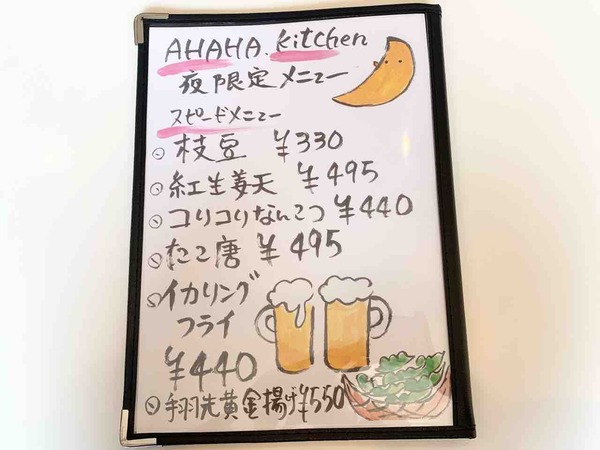 AHAHA.kitchen
夜限定メニュー
スピードメニュー
枝豆 ¥330
紅生姜天 ¥495
コリコリなんこつ ¥440
たこ唐 ¥495
イカリング
フライ
¥440
手羽先黄金揚げ¥550